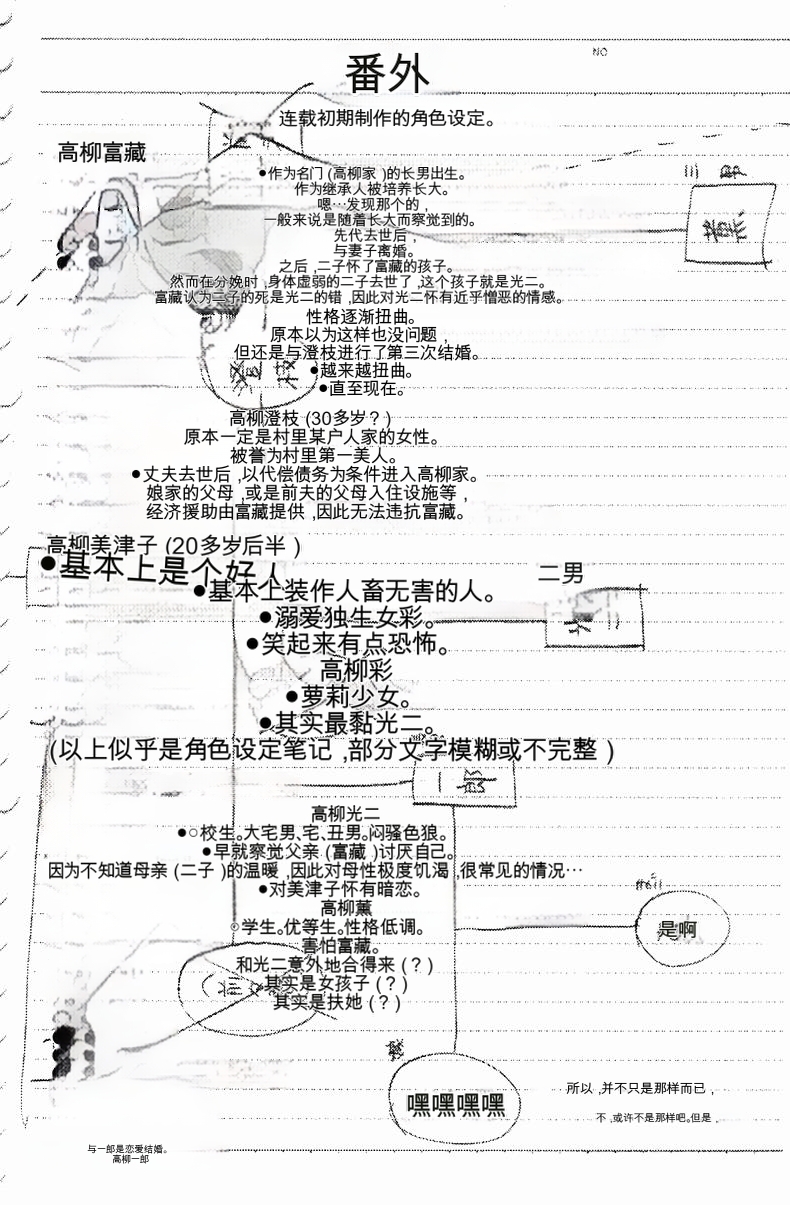 NO
番外
连载初期制作的角色设定。
高柳富藏
●作为名门(高柳家)的长男出生。
作为继承人被培养长大。
嗯…发现那个的,
一般来说是随着长大而察觉到的。
先代去世后,
与妻子离婚。
之后,二子怀了富藏的孩子。
然而在分娩时,身体虚弱的二子去世了,这个孩子就是光二。
富藏认为二子的死是光二的错,因此对光二怀有近乎憎恶的情感。
性格逐渐扭曲。
原本以为这样也没问题,
但还是与澄枝进行了第三次结婚。
●越来越扭曲。
●直至现在。
三男
薫
澄枝
高柳澄枝(30多岁?)
原本一定是村里某户人家的女性。
被誉为村里第一美人。
●丈夫去世后,以代偿债务为条件进入高柳家。
娘家的父母,或是前夫的父母入住设施等,
经济援助由富藏提供,因此无法违抗富藏。
高柳美津子(20多岁后半)
●基本上是个好人
●基本上装作人畜无害的人。
●溺爱独生女彩。
●笑起来有点恐怖。
二男
光二
高柳彩
●萝莉少女。
●其实最黏光二。
(以上似乎是角色设定笔记,部分文字模糊或不完整)
一郎
高柳光二
●○校生。大宅男、宅、丑男。闷骚色狼。
●早就察觉父亲(富藏)讨厌自己。
因为不知道母亲(二子)的温暖,因此对母性极度饥渴,很常见的情况…
●对美津子怀有暗恋。
高柳薫
◎学生。优等生。性格低调。
害怕富藏。
和光二意外地合得来(?)
其实是女孩子(?)
其实是扶她(?)
是啊
嘿嘿嘿嘿
所以,并不只是那样而已,
不,或许不是那样吧。但是,
与一郎是恋爱结婚。
高柳一郎